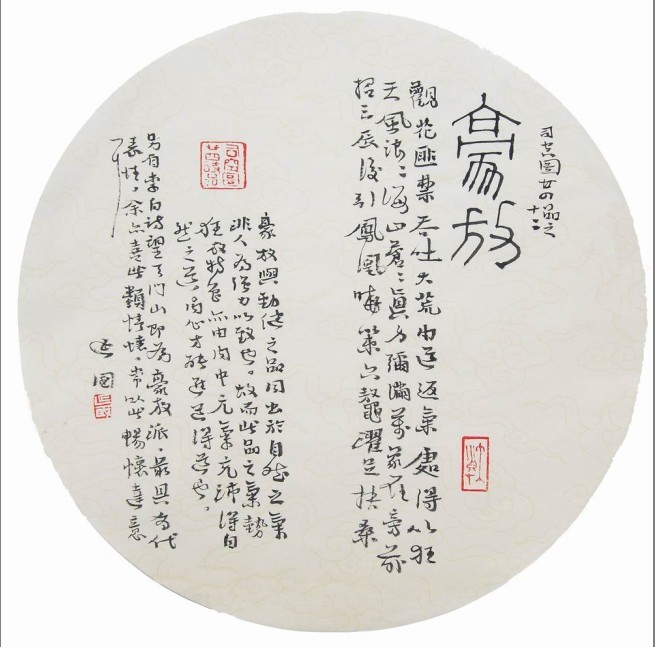 司空圖廿四品之
十二
豪放
觀花匪禁吞吐大荒由道返氣處得以狂
天風浪〻海山蒼〻真力彌滿萬象在旁前
招三辰後引鳳凰曉策六鼇濯足扶桑
司空圖
廿四詩品
豪放與勁健之品同出於自然之氣
非人為強力以致也。故而此品之氣勢
狂放特色亦由內中元氣充沛得自
然之道。心方能進道得道也。
另有李白詩望天門山即為豪放派，最具有代
表性，余亦喜此類情懷，常以此暢懷達意
國